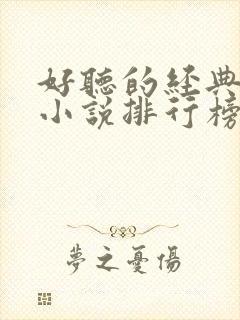 好聽的經典
小說排行榜
夢之憂傷